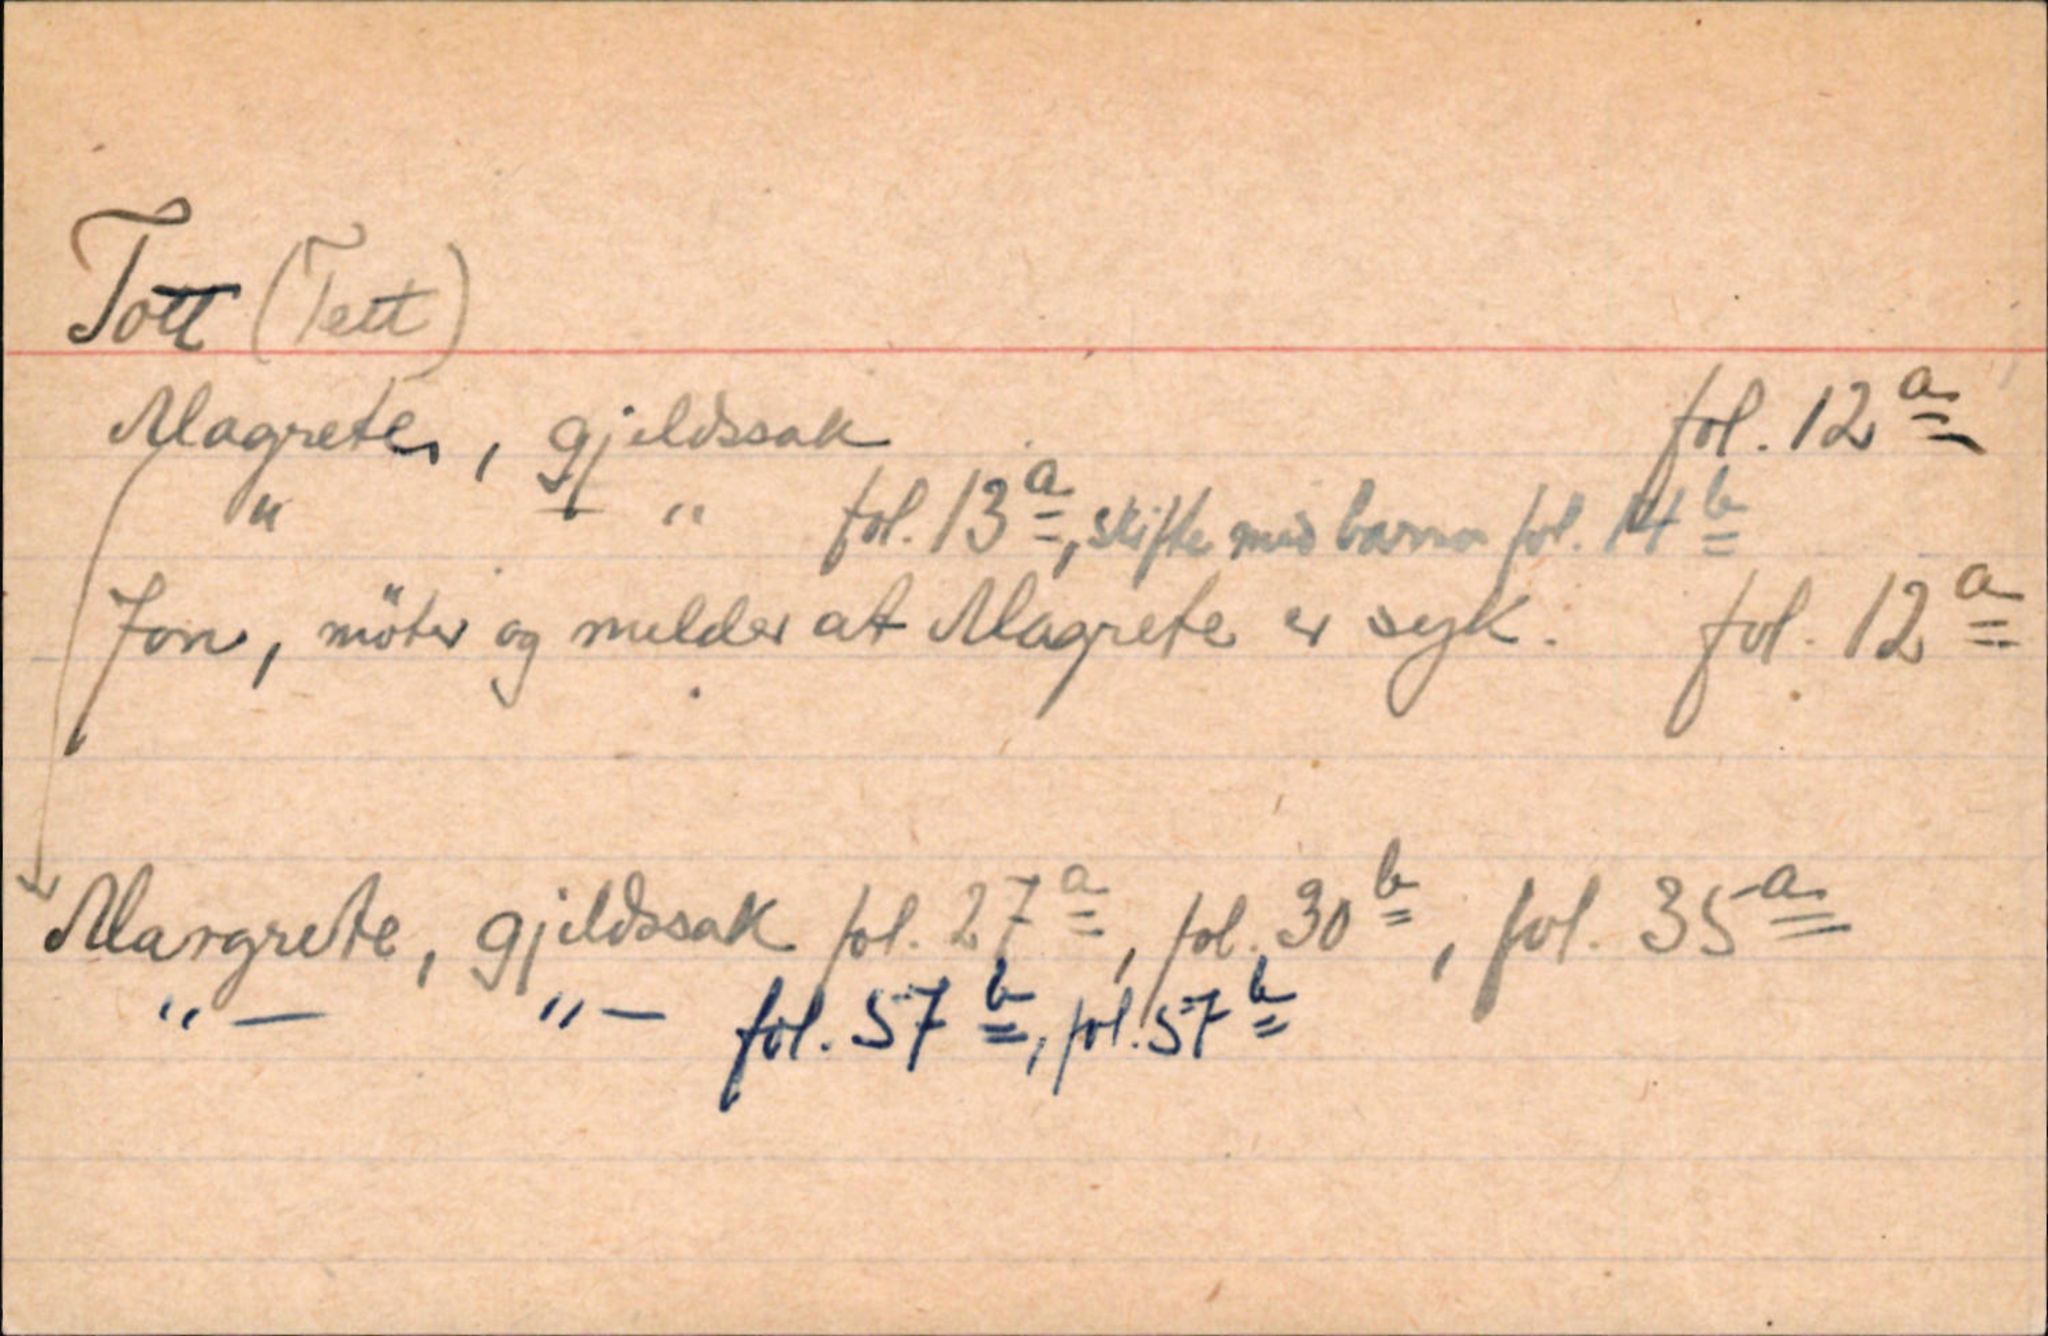 Tott (Tett)
Magrete, gjeldssak fol. 12a
" — " fol. 13a, skifte med barna fol. 14b
Jon, möter og melder at Magrete er syk. fol. 12a
Margrete, gjeldssak fol. 27a, fol. 30b, fol. 35a
" — " — fol. 57b, fol. 57b